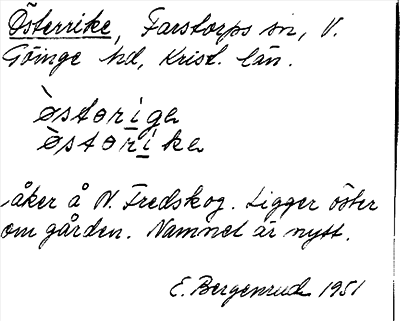 Österrike, Farstorps sn, V.
Göinge hd, Krist. län.
åker å N. Fredskog. Ligger öster
om gården. Namnet är nytt.
E. Bergenrud 1951